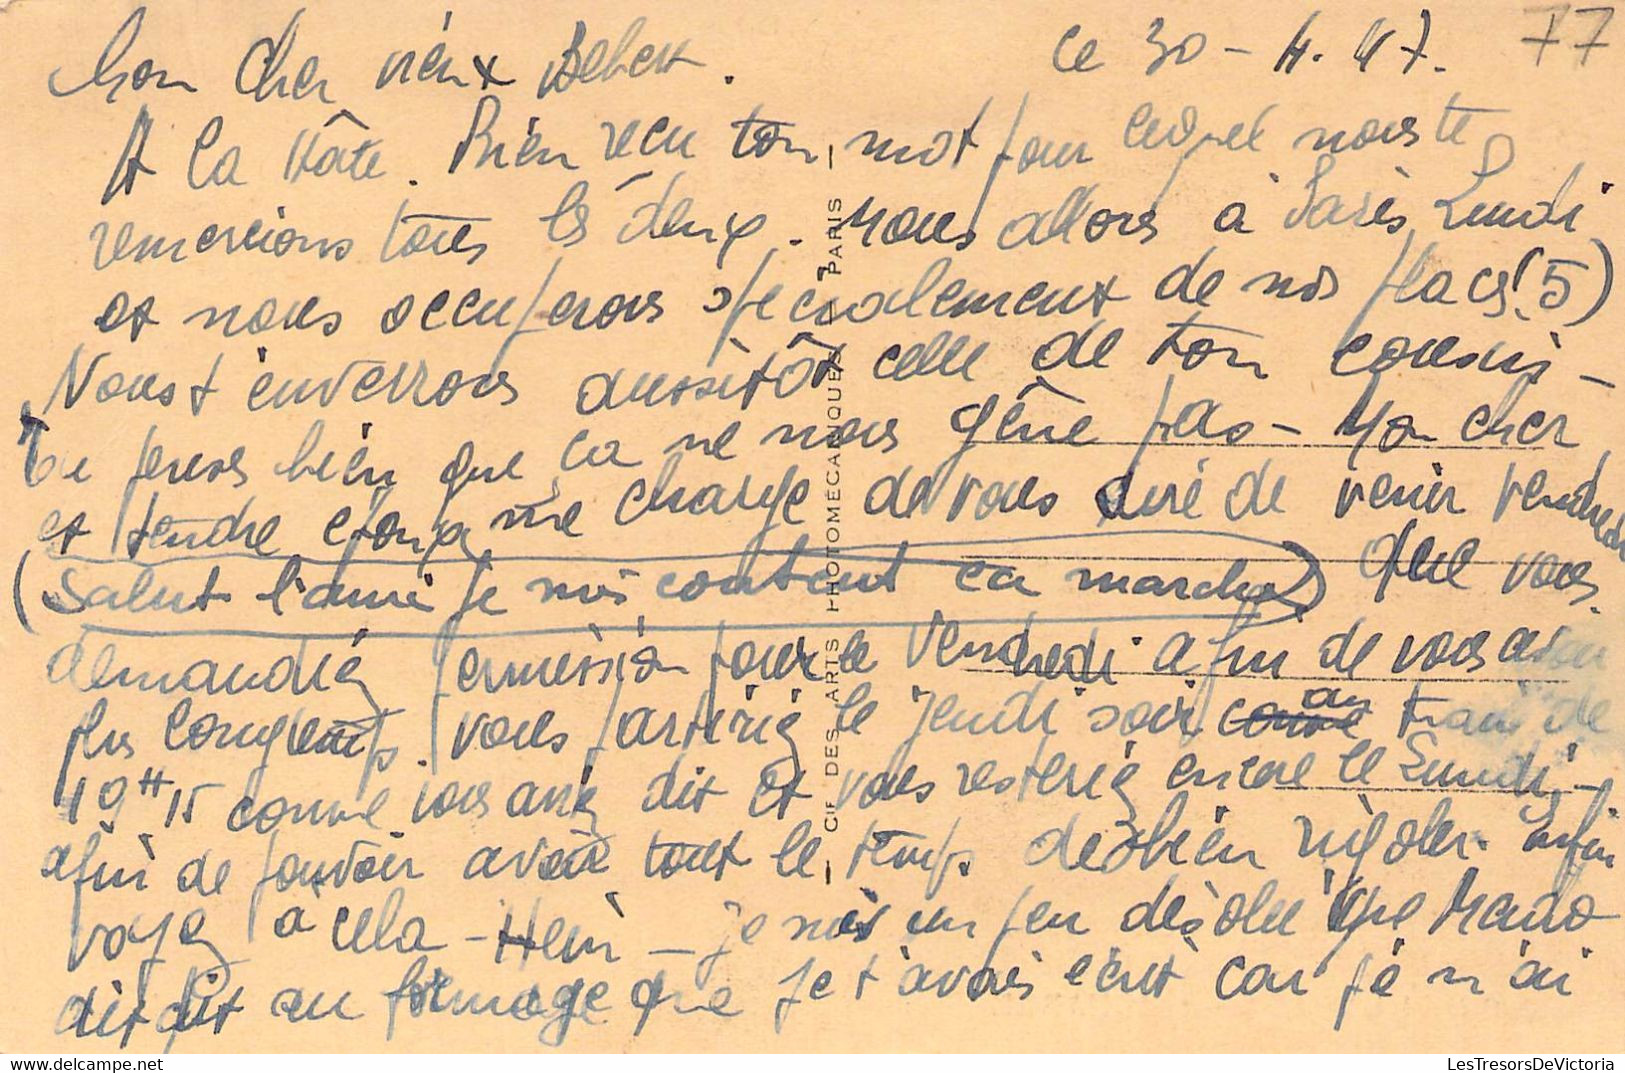 Mon Cher vieux Bebert. ce 30-4.47. 77
A la Hâte. Bien reçu ton mot pour lequel nous te
remercions tous les deux. Nous allons à Paris Lundi
et nous occuperons spécialement de nos places! (5)
Nous t'enverrons aussitôt celle de ton cousin -
Tu penses bien que ça ne nous gêne pas - Mon cher
et tendre époux me charge de vous dire de venir vendredi
(Salut l'ami je suis content ca marche) Que vous
demandiez permission pour le Vendredi afin de vous avoir
plus longtemps. vous partiriez le jeudi soir au train de
19H15 comme vous aviez dit et vous resteriez encore le Lundi -
afin de pouvoir avoir tout le temps de bien rigoler. enfin
voyez à cela - Hein - je suis un peu désolée que
dit au fromage que je t'avais écrit car je n'ai
CIE DES ARTS PHOTOMÉCANIQUES - PARIS -
LesTresorsDeVictoria